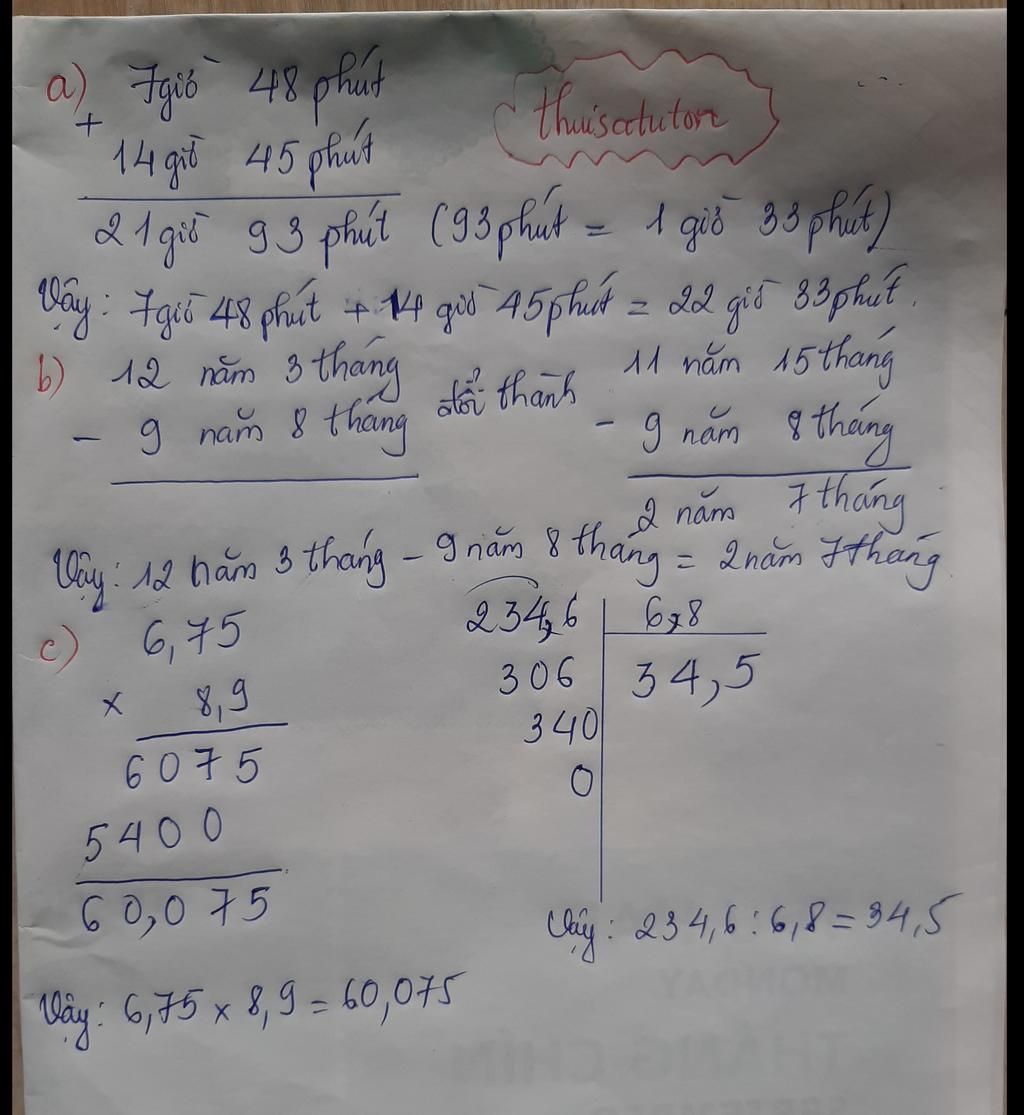 a) 7 giờ 48 phút
thuisatuton
+
14 giờ 45 phút
21 giờ 93 phút (93 phút = 1 giờ 33 phút)
Vậy: 7 giờ 48 phút + 14 giờ 45 phút = 22 giờ 33 phút.
b) 12 năm 3 tháng đổi thành 11 năm 15 tháng
- 9 năm 8 tháng - 9 năm 8 tháng
2 năm 7 tháng
Vậy: 12 năm 3 tháng - 9 năm 8 tháng = 2 năm 7 tháng
c) 6,75
x 8,9
6075
5400
60,075
Vậy: 6,75 x 8,9 = 60,075
234,6 6,8
306 34,5
340
0
Vậy: 234,6 : 6,8 = 34,5